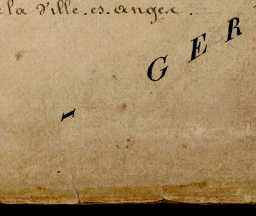 la Ville. es. ange.
I GER